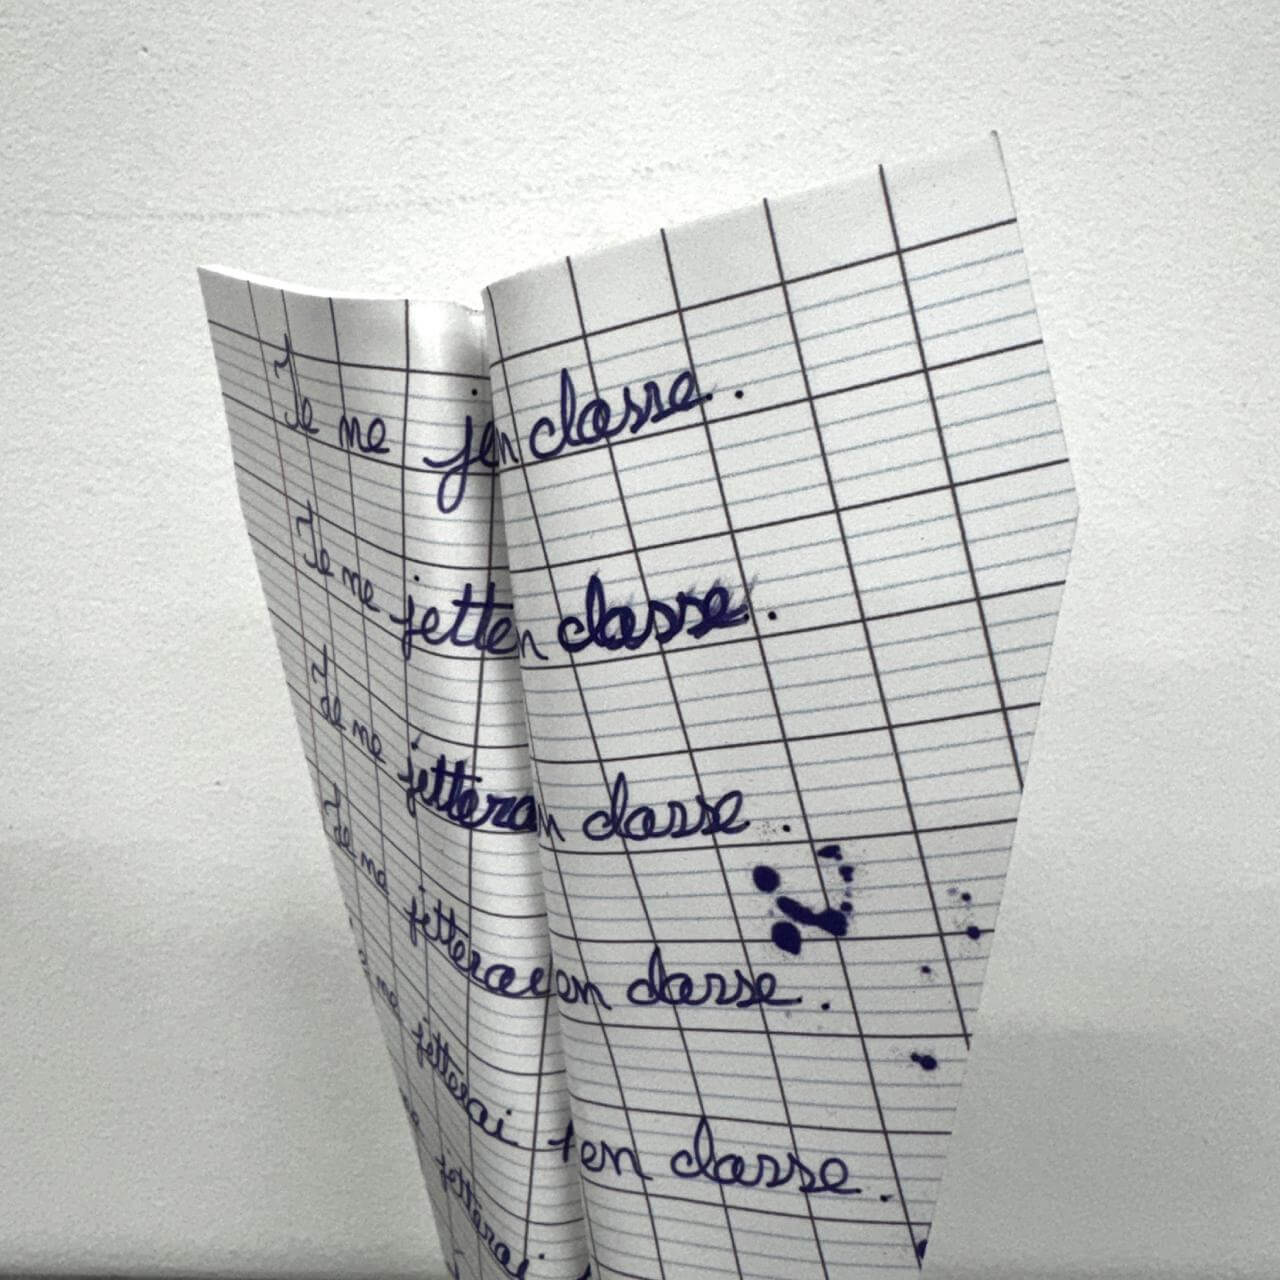 Je me je n classe.
Je me jette n classe.
Je me jettera n classe.
Je me jetterai en classe.
e me jetterai t en classe.
me jetterai